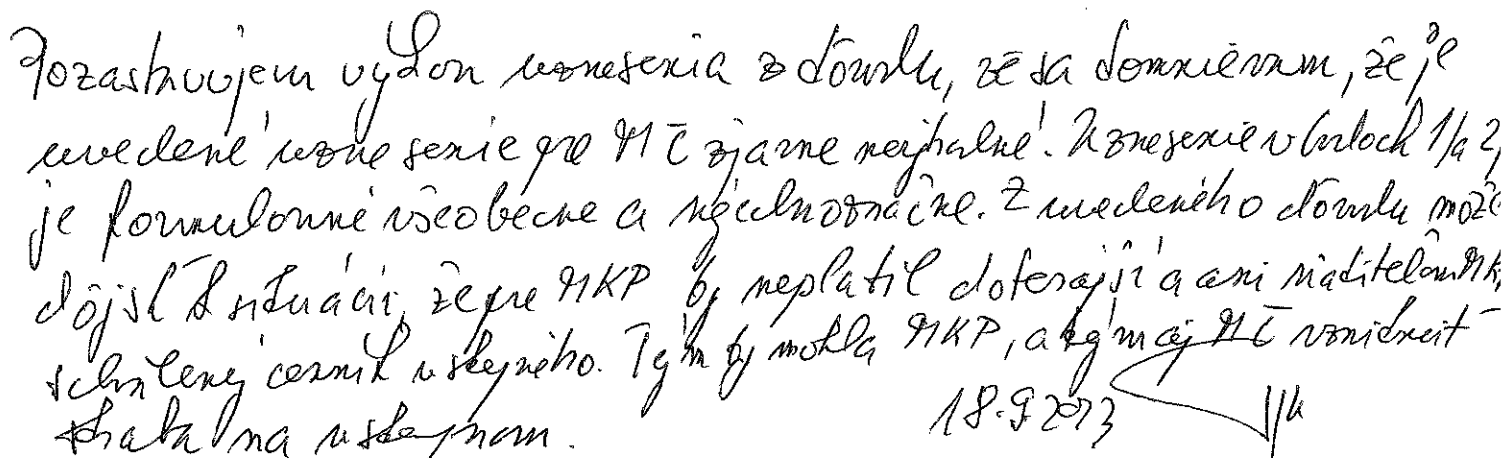 Pozastavujem výkon uznesenia z dôvodu, že sa domnievam, že je
uvedené uznesenie pre MČ zjavne nevýhodné. Uznesenie v bodoch 1/a 2/
je formulované všeobecne a nejednoznačne. Z uvedeného dôvodu môže
dôjsť k situácii, že pre MKP by neplatil doterajší a ani riaditeľom MK
schválený cenník vstupného. Tým by mohla MKP, a tým aj MČ vzniknúť
strata na vstupnom.
18.9.2013